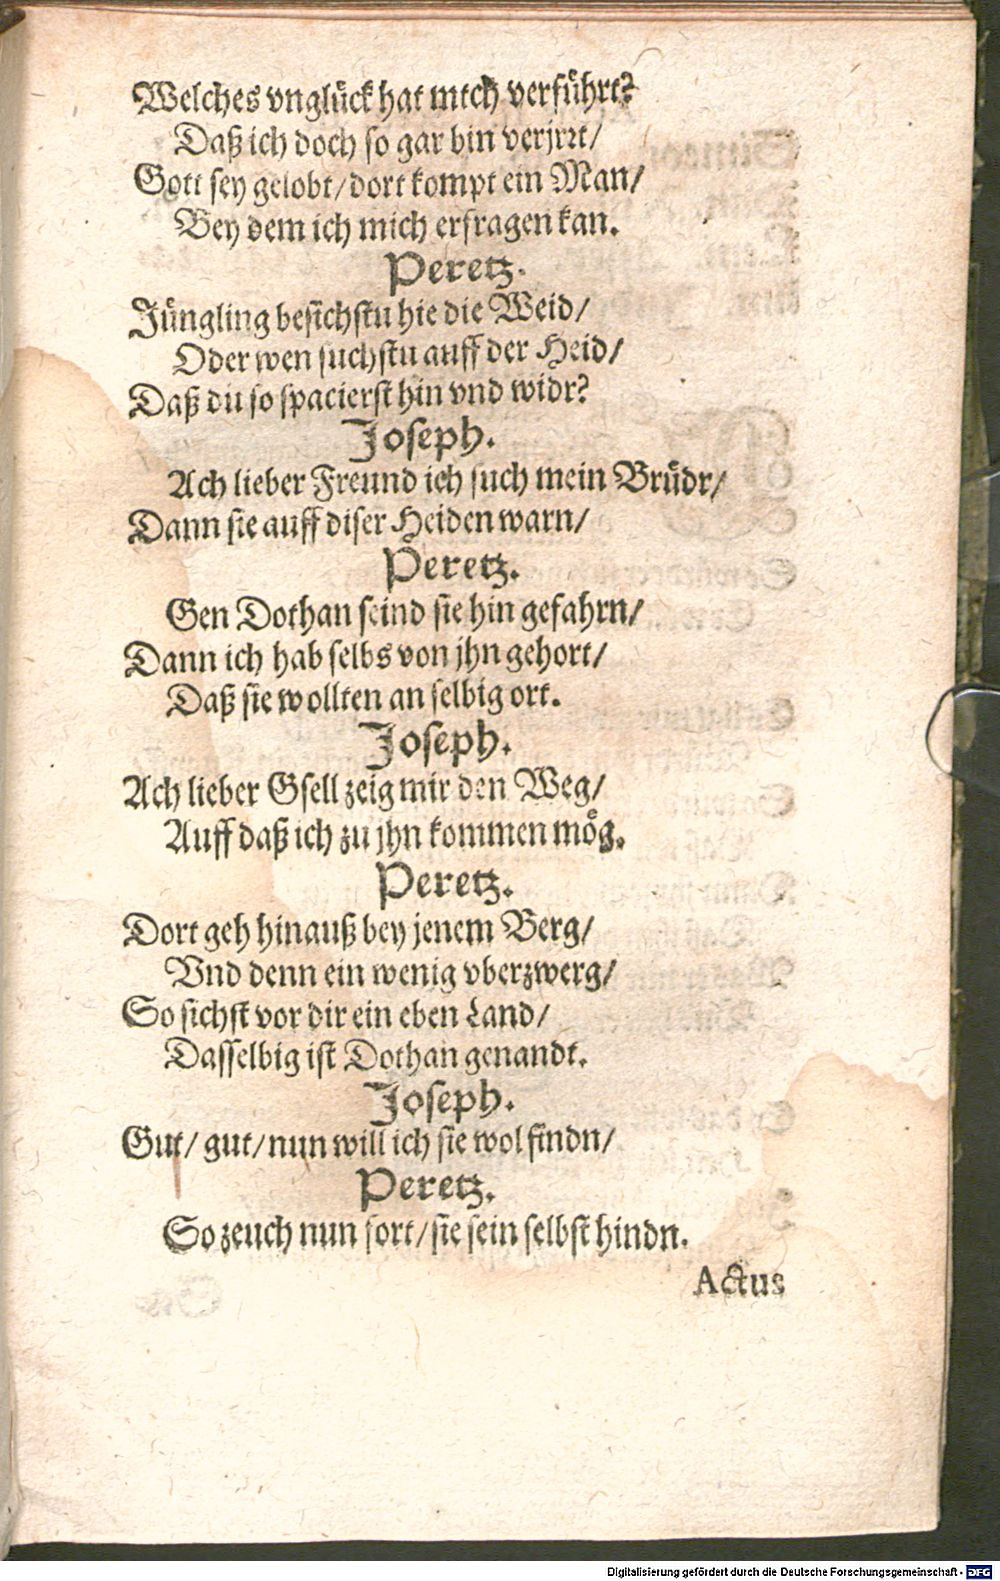 Welches vnglück hat mich verführt?
Daß ich doch so gar bin verjrrt/
Gott sey gelobt/ dort kompt ein Man/
Bey dem ich mich erfragen kan.
Peretz.
Jüngling besichstu hie die Weid/
Oder wen suchstu auff der Heid/
Daß du so spacierst hin vnd widr?
Joseph.
Ach lieber Freund ich such mein Brüdr/
Dann sie auff diser Heiden warn/
Peretz.
Gen Dothan seind sie hin gefahrn/
Dann ich hab selbs von jhn gehort/
Daß sie wollten an selbig ort.
Joseph.
Ach lieber Gsell zeig mir den Weg/
Auff daß ich zu jhn kommen mög.
Peretz.
Dort geh hinauß bey jenem Berg/
Vnd denn ein wenig vberzwerg/
So sichst vor dir ein eben Land/
Dasselbig ist Dothan genandt.
Joseph.
Gut/ gut/ nun will ich sie wol findn/
Peretz.
So zeuch nun fort/ sie sein selbst hindn.
Actus
Digitalisierung gefördert durch die Deutsche Forschungsgemeinschaft - DFG